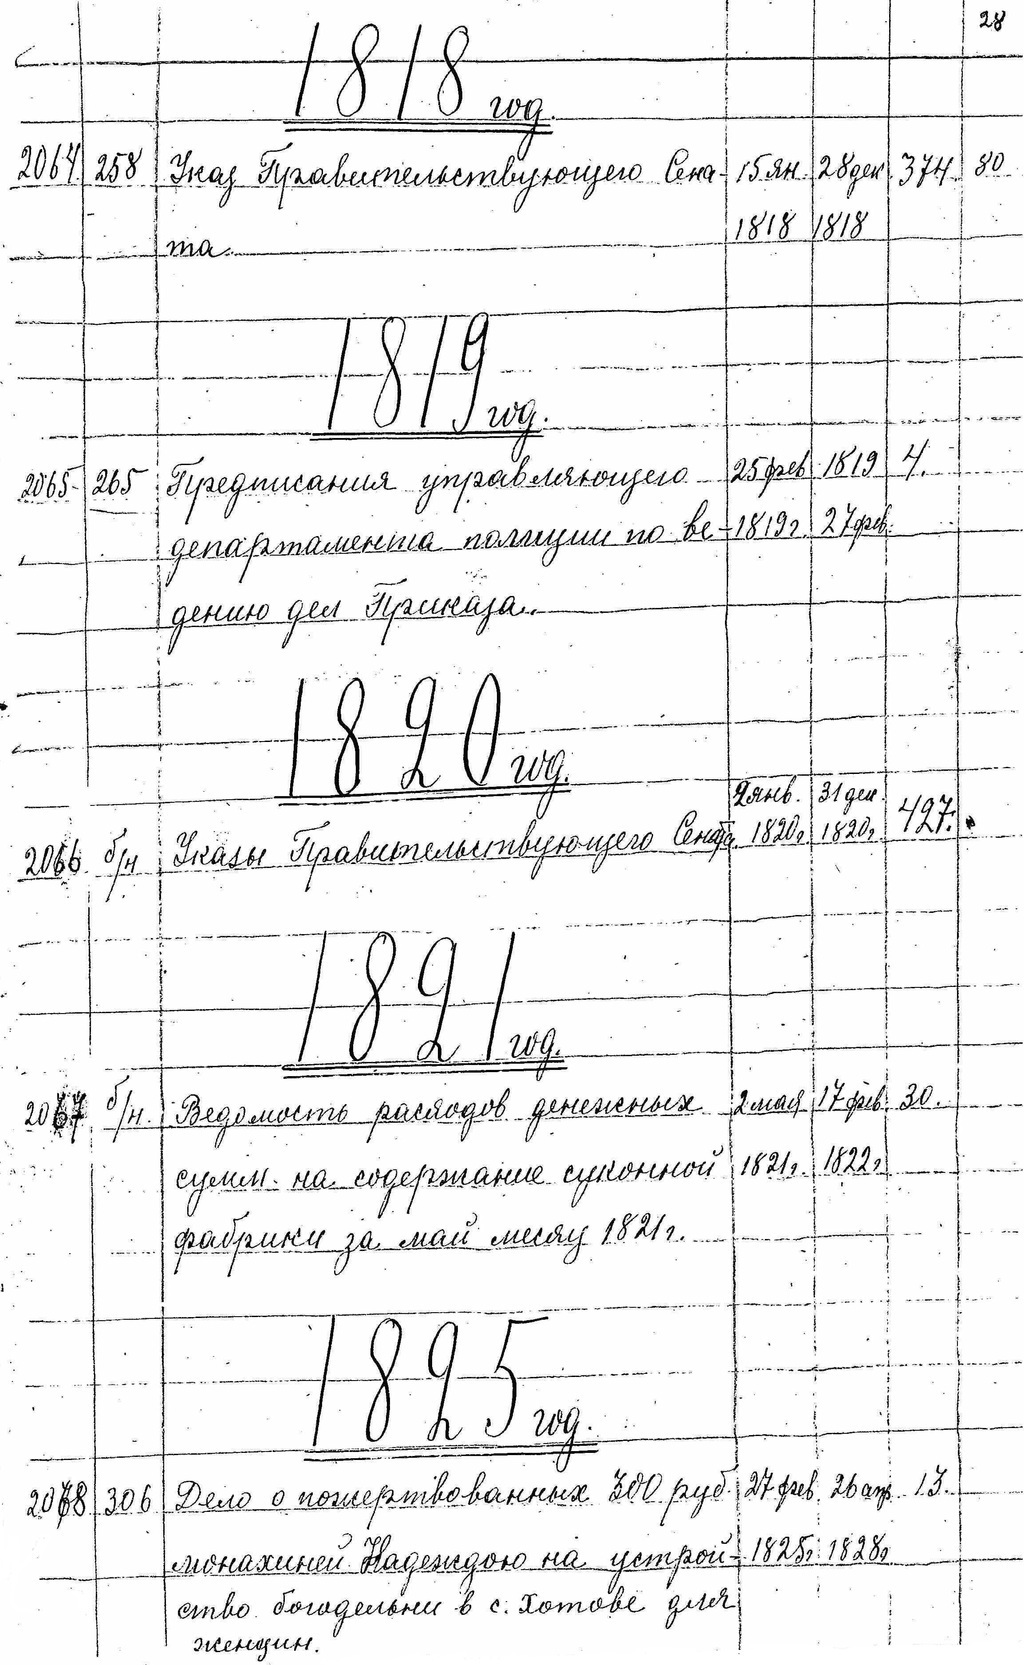 28
1818 год.
2064 258 Указ Правительствующего Сена- 15 ян. 28 дек 374. 80
та. 1818 1818
1819 год.
2065 265 Предписания управляющего 25 фев 1819 4.
департамента полиции по ве- 1819г. 27 фев.
дению дел Приказа.
1820 год.
2 янв. 31 дек.
2066 б/н Указы Правительствующего Сената 1820г 1820г. 427.
1821 год.
2067 б/н. Ведомость расходов денежных 2 мая 17 фев 30.
сумм на содержание суконной 1821г. 1822г
фабрики за май месяц 1821г.
1825 год.
2068 306 Дело о пожертвованных 300 руб. 27 фев. 26 апр 13.
монахиней Надеждою на устрой- 1825г. 1828г
ство богодельни в с. Хотове для
женщин.